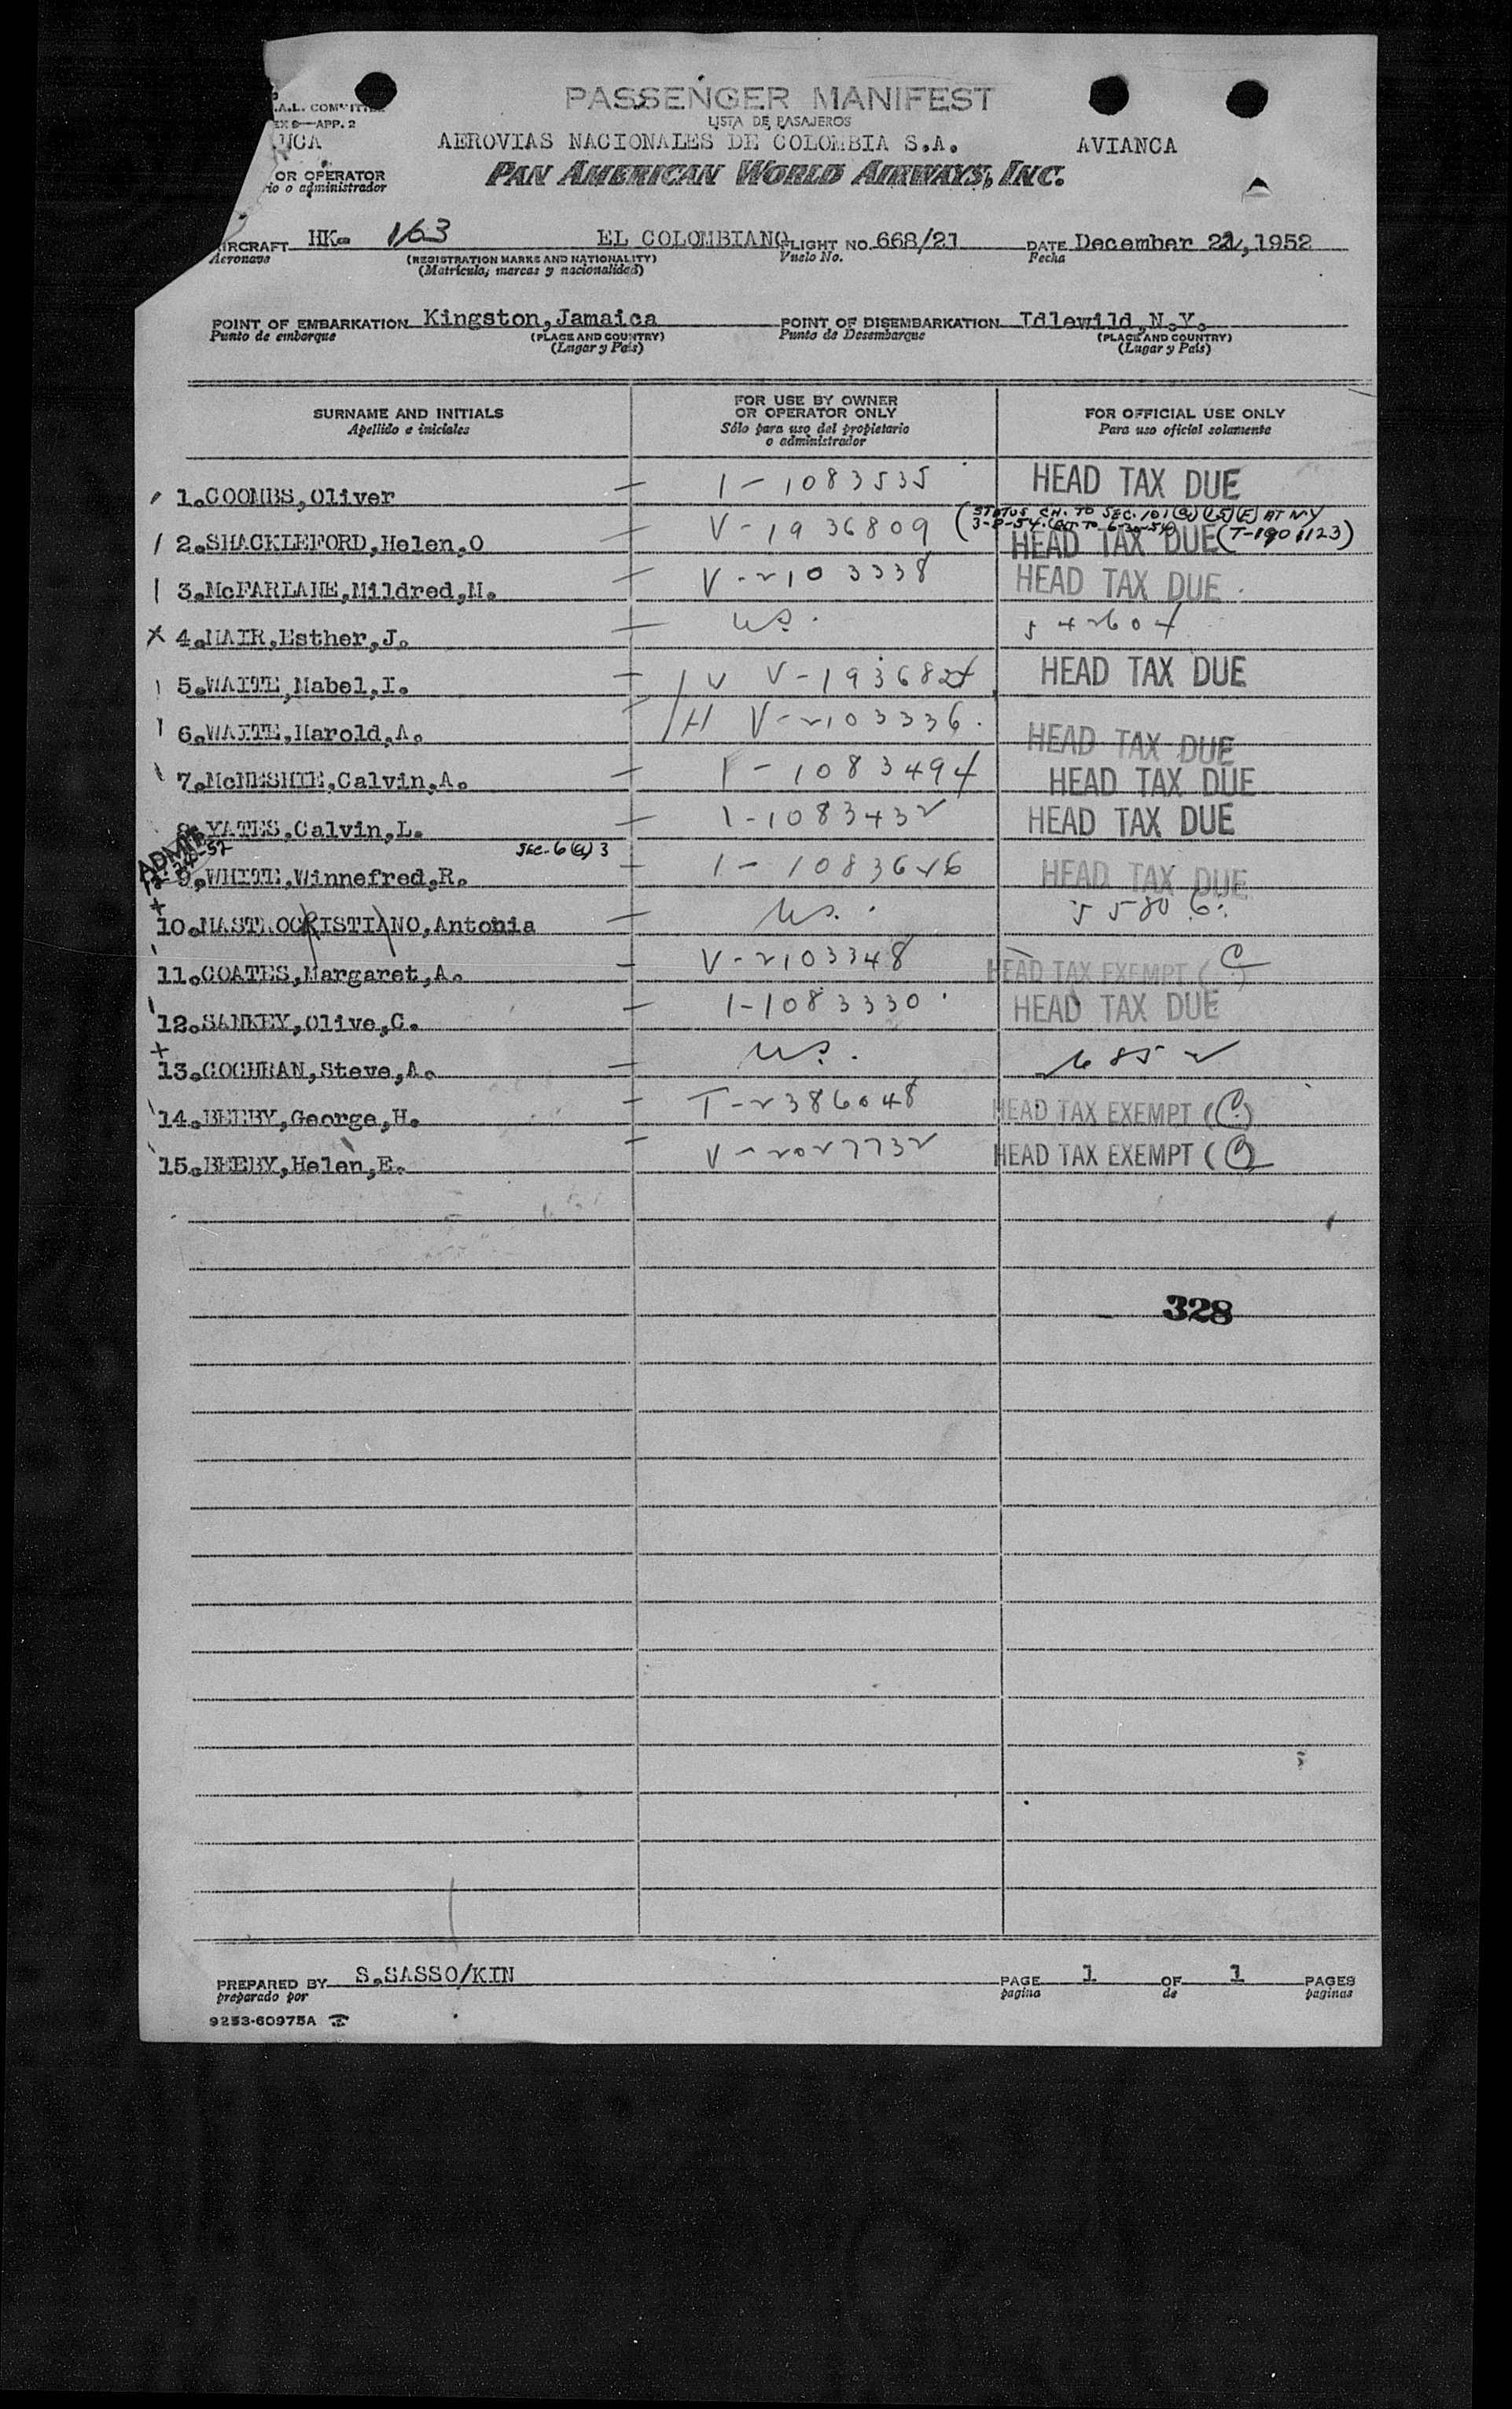 PASSENGER MANIFEST
LISTA DE PASAJEROS
.A.L. COMMITTEE
EX 9—APP. 2
AEROVIAS NACIONALES DE COLOMBIA S.A. AVIANCA
OR OPERATOR
rio o administrador
PAN AMERICAN WORLD AIRWAYS, INC.
AIRCRAFT HK- 163 EL COLOMBIANO FLIGHT NO. 668/21 DATE December 21, 1952
Aeronave (REGISTRATION MARKS AND NATIONALITY) Vuelo No. Fecha
(Matricula, marcas y nacionalidad)
POINT OF EMBARKATION Kingston, Jamaica POINT OF DISEMBARKATION Idlewild, N.Y.
Punto de embarque (PLACE AND COUNTRY) Punto de Desembarque (PLACE AND COUNTRY)
(Lugar y País) (Lugar y País)
SURNAME AND INITIALS FOR USE BY OWNER OR OPERATOR ONLY FOR OFFICIAL USE ONLY
Apellido e iniciales Sólo para uso del propietario o administrador Para uso oficial solamente
1. COOMBS, Oliver — I-1083535 HEAD TAX DUE
(STATUS CH. TO SEC. 101 (a) (15) (F) AT NY
3-8-54. TO 6-30-54)
2. SHACKLEFORD, Helen, O — V-1936809 HEAD TAX DUE (T-1901123)
3. McFARLANE, Mildred, M. — V-2103338 HEAD TAX DUE
X 4. NAIR, Esther, J. — US. 54260
5. WAITE, Mabel, I. — W V-1936824 HEAD TAX DUE
6. WAITE, Harold, A. H V-2103336. HEAD TAX DUE
7. McNESHIE, Calvin, A. — I-1083494 HEAD TAX DUE
8. YATES, Calvin, L. — I-1083432 HEAD TAX DUE
ADMIT
SEC. 6(a) 3
9. WHITE, Winnefred, R. — I-1083626 HEAD TAX DUE
+ 10. MASTROCRISTIANO, Antonia — US. 55806.
11. COATES, Margaret, A. — V-2103348 HEAD TAX EXEMPT (C)
12. SANKEY, Olive, C. — I-1083330 HEAD TAX DUE
+ 13. COCHRAN, Steve, A. — US. 6852
14. BEEBY, George, H. — T-2386048 HEAD TAX EXEMPT (C)
15. BEEBY, Helen, E. — V-2027732 HEAD TAX EXEMPT (C)
328
PREPARED BY S.SASSO/KIN PAGE 1 OF 1 PAGES
preparado por pagina de paginas
9253-60975A